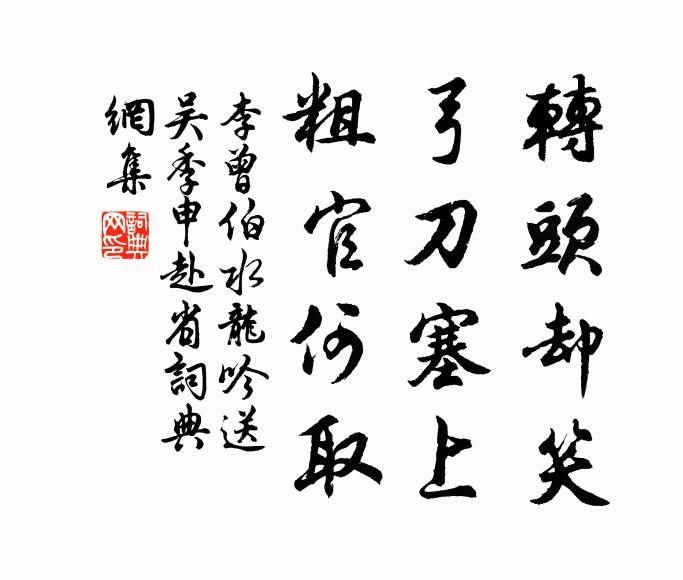 轉頭却笑
弓刀塞上
粗官何取
李曾伯水龍吟送
吳季申赴省詞典
網集
詞典網印